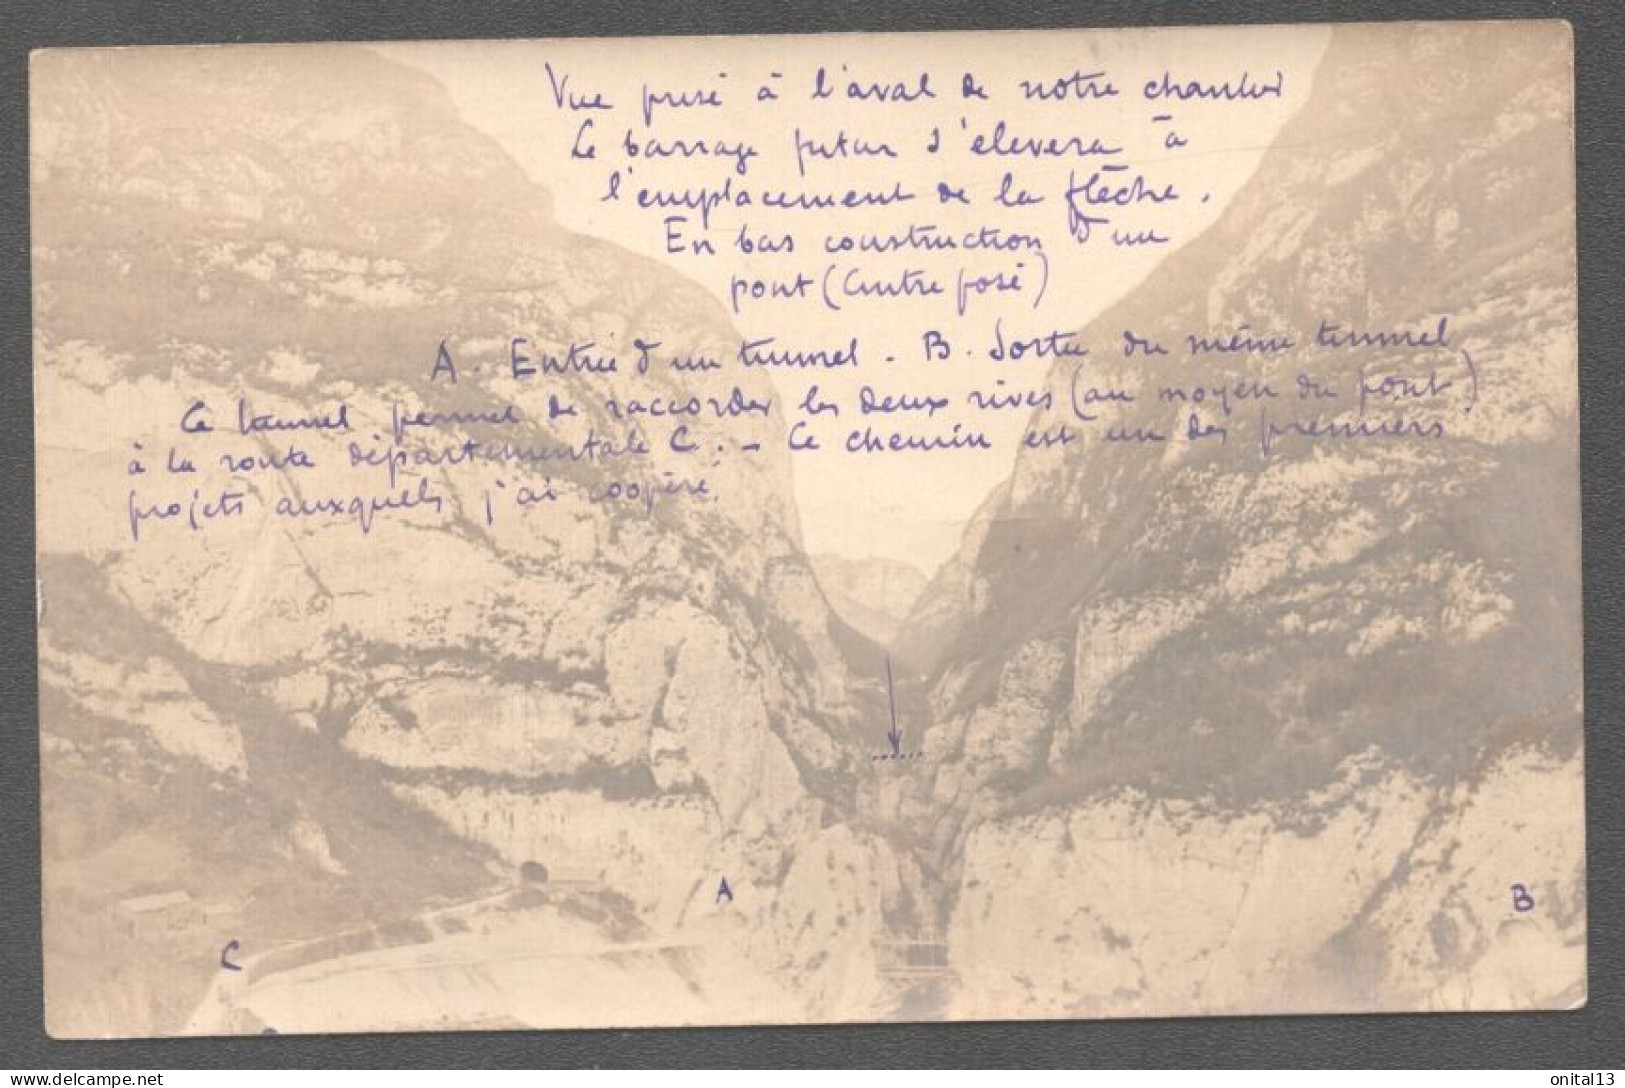 Vue prise à l'aval de notre chantier
Le barrage futur s'élevera à
l'emplacement de la flèche.
En bas construction d'un
pont (cintre posé)
A. Entrée d'un tunnel. B. Sortie du même tunnel
Ce tunnel permet de raccorder les deux rives (au moyen du pont)
à la route départementale C. - Ce chemin est un des premiers
projets auxquels j'ai coopéré.
A
B
C
onital13